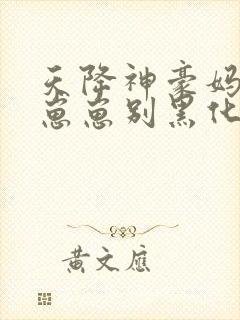 天降神豪妈
崽崽别黑化
黄文应